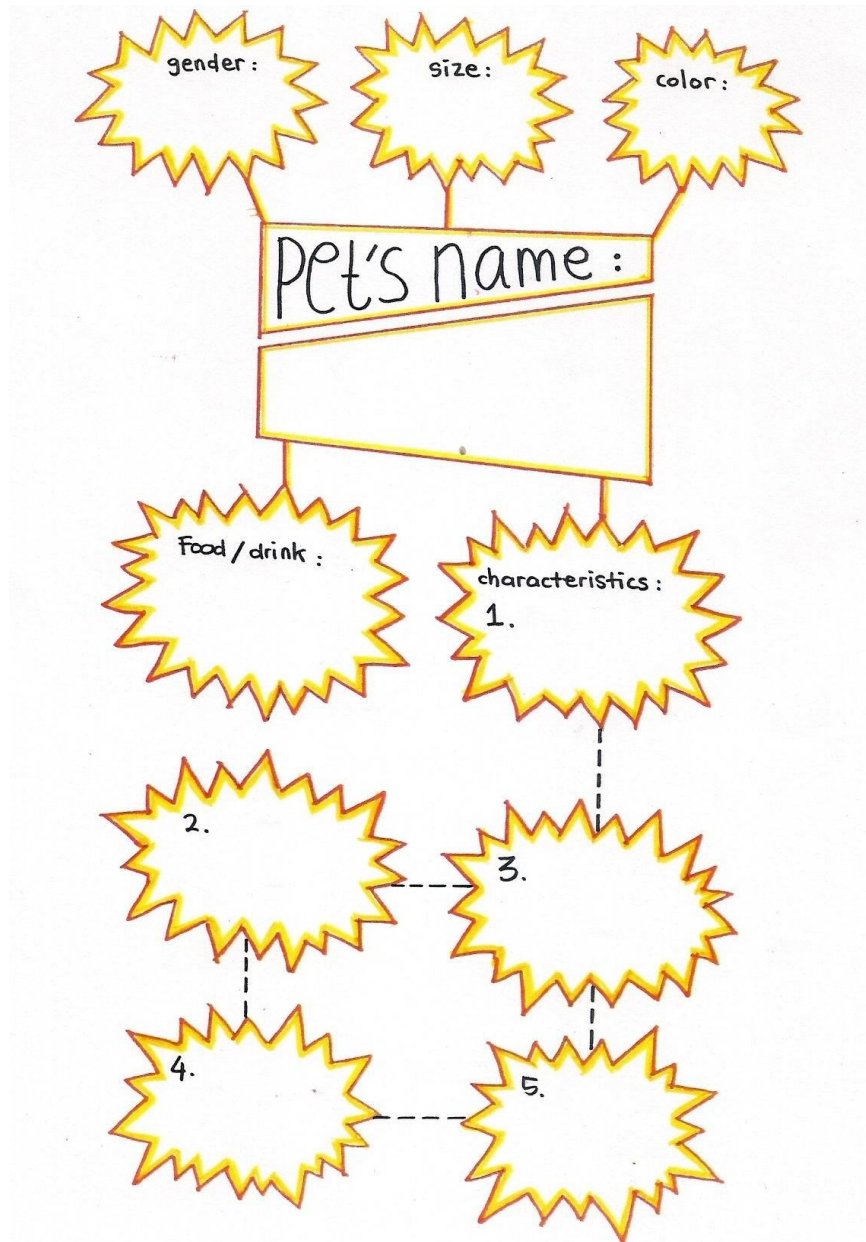 gender :
size :
color :
Pet's name :
Food / drink :
characteristics :
1.
2.
3.
4.
5.